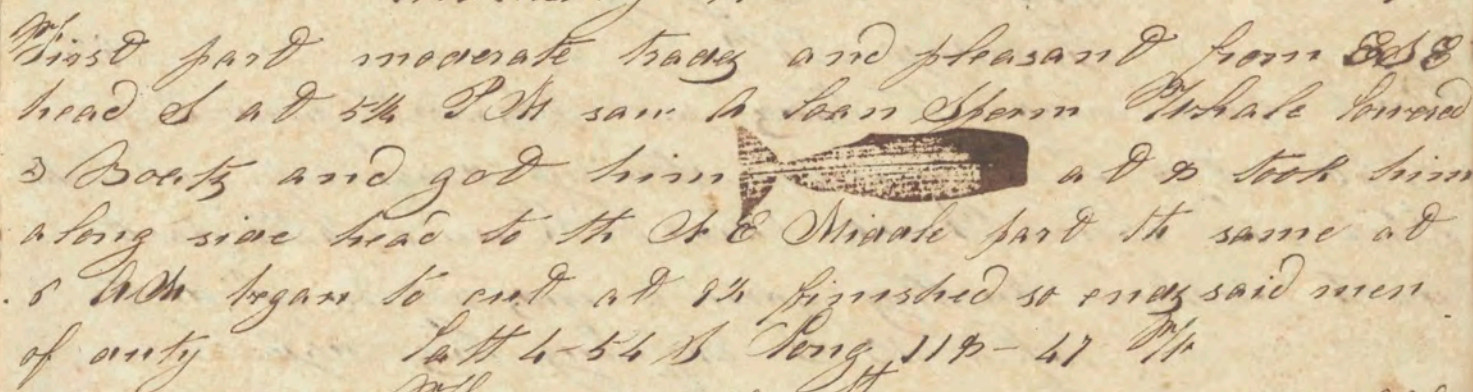 First part moderate trades and pleasant from ESE
head S at 5½ P M saw a loan Sperm Whale lowered
3 Boats and got him at 8 took him
along side head to th N E Middle part th same at
6 A M began to cut at 9½ finished so ends said men
of duty Latt 4-54 S Long 118-47 W